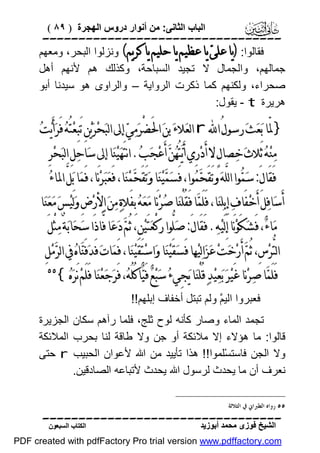 الباب الثانى: من أنوار دروس الهجرة ( ٨٩ )
فقالوا: (يا علىّ يا عظيم يا حليم يا كريم) ونزلوا البحر، ومعهم
جمالهم، والجمال لا تجيد السباحة، وكذلك هم لأنهم أهل
صحراء، ولكنهم كما ذكرت الرواية – والراوى هو سيدنا أبو
هريرة t - يقول:
{ لَمَّا بَعَثَ رسولُ الله r العَلاءَ بنَ الْحَضْرَمِيِّ إلى البَحْرَيْنِ تَبِعْتُهُ فَرَأَيْتُ
مِنْهُ ثَلاثَ خِصَالٍ لا أَدْرِي أَيَّتُهُنَّ أَعْجَبُ . انتَهَيْنَا إلى سَاحِلِ البَحْرِ
فَقَالَ: سَمُّوا اللَّهَ وَتَقَحَّمُوا، فَسَمَّيْنَا وَتَقَحَّمْنَا، فَعَبَرْنَا، فَمَا بَلَّ المَاءُ
أَسَافِلَ أَخْفَافِ إبِلِنَا، فَلَمَّا قَفَلْنَا صِرْنَا مَعَهُ بِفَلاةٍ مِنَ الأَرْضِ وَلَيْسَ مَعَنَا
مَاءٌ، فَشَكَوْنَا إلَيْهِ . فَقَالَ: صَلُّوا رَكْعَتَيْنِ، ثُمَّ دَعَا فَإذَا سَحَابَةٌ مِثْلُ
التُّرْسِ، ثُمَّ أَرْخَتْ عَزَالَيْهَا فَسَقَيْنَا وَاسْتَقَيْنَا، فَمَاتَ فَدَفَنَّاهُ فِي الرَّمْلِ
فَلَمَّا صِرْنَا غَيْرَ بَعِيدٍ قُلْنَا يَجِيءُ سَبُعٌ فَيَأْكُلُهُ، فَرَجَعْنَا فَلَمْ نَرَهُ }٥٥
فعبروا اليمّ ولم تبتل أخفاف إبلهم!!
تجمد الماء وصار كأنه لوح ثلج، فلما رآهم سكان الجزيرة
قالوا: ما هؤلاء إلا ملائكة أو جن ولا طاقة لنا بحرب الملائكة
ولا الجن فاستسْلموا!! هذا تأييد من الله لأعوان الحبيب r حتى
نعرف أن ما يحدث لرسول الله يحدث لأتباعه الصادقين.
٥٥ رواه الطبرانى فى الثلاثة
الشيخ فوزى محمد أبوزيد
الكتاب السبعون
PDF created with pdfFactory Pro trial version www.pdffactory.com